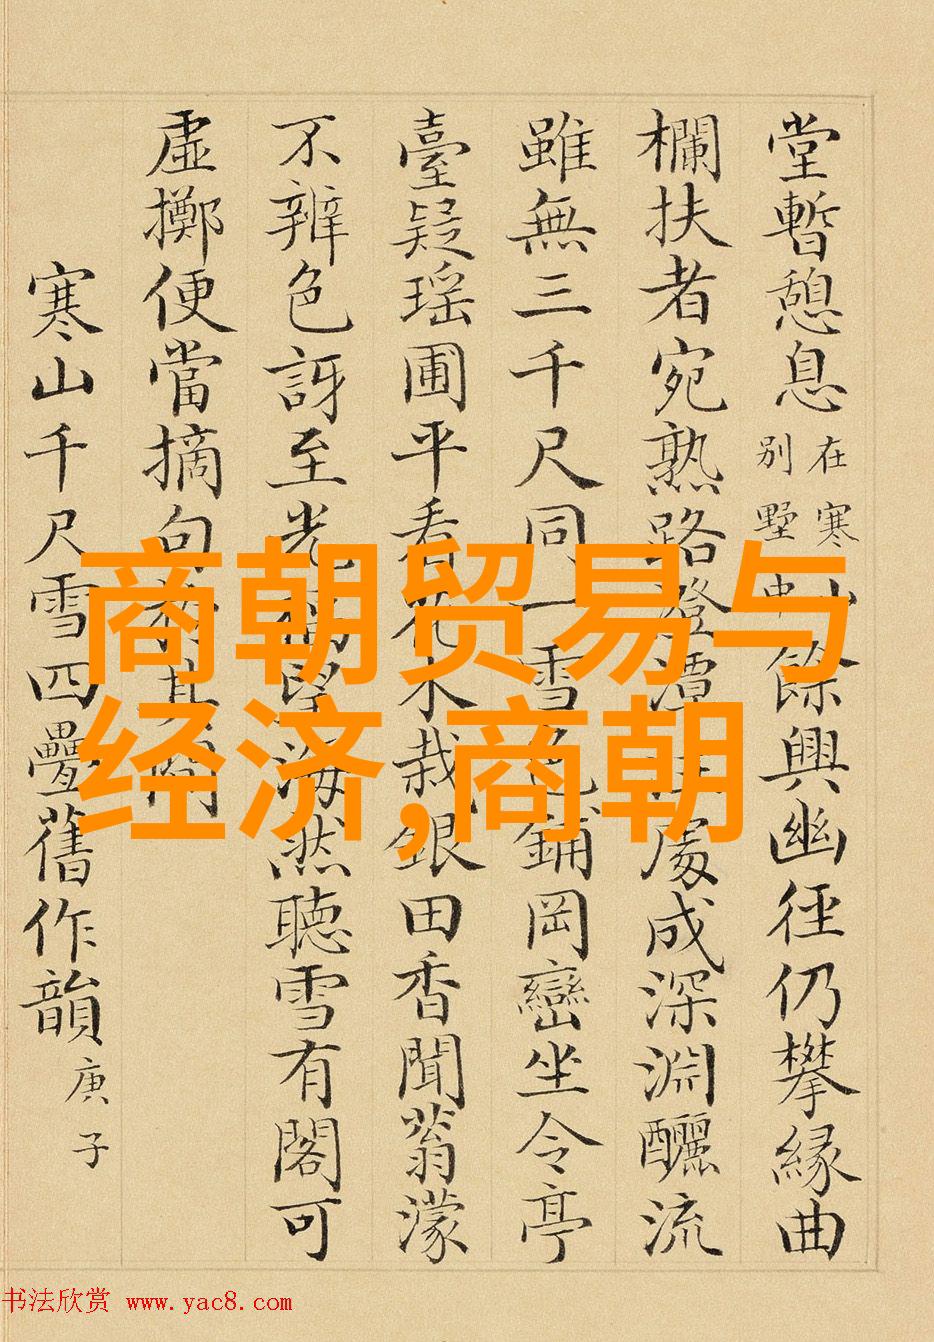 堂暫憩息在寒山別墅中餘興幽徑仍攀緣曲
欄扶者宛熟路澄潭處成深淵釃流
雖無三千尺同一雪色鋪岡巒坐令亭
臺疑瑶圃平看花木栽銀田香聞蓊濛
不辨色訝至光望海然聽雪有閣可
虛擲便當摘句於其間
寒山千尺雪四疊舊作韻庚子
商朝贸易与
经济,商朝
书法欣赏 www.yac8.com